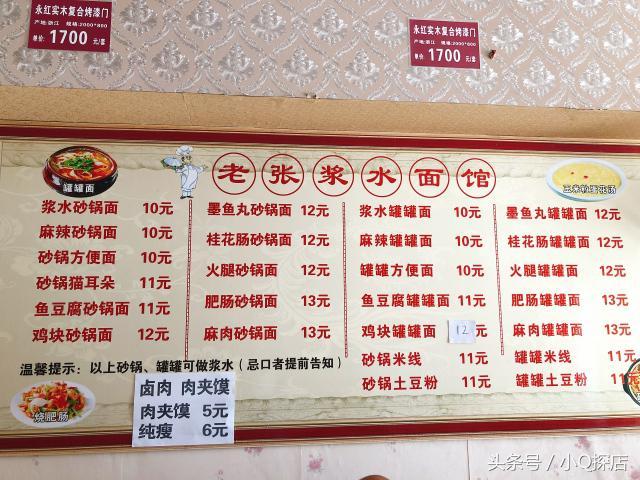 永红实木复合烤漆门
产地:浙江 规格:2000*800
单价: 1700 元/套
永红实木复合烤漆门
产地:浙江 规格:2000*800
单价: 1700 元/套
老张浆水面馆
罐罐面
浆水砂锅面 10元
麻辣砂锅面 10元
砂锅方便面 10元
砂锅猫耳朵 11元
鱼豆腐砂锅面 11元
鸡块砂锅面 12元
墨鱼丸砂锅面 12元
桂花肠砂锅面 12元
火腿砂锅面 12元
肥肠砂锅面 13元
麻肉砂锅面 13元
浆水罐罐面 10元
麻辣罐罐面 10元
罐罐方便面 10元
鱼豆腐罐罐面 11元
鸡块罐罐面 12元
砂锅米线 11元
砂锅土豆粉 11元
墨鱼丸罐罐面 12元
桂花肠罐罐面 12元
火腿罐罐面 12元
肥肠罐罐面 13元
麻肉罐罐面 13元
罐罐米线 11元
罐罐土豆粉 11
温馨提示：以上砂锅、罐罐可做浆水（忌口者提前告知）
烧肥肠
卤肉 肉夹馍
肉夹馍 5元
纯瘦 6元
头条号 / 小Q探店